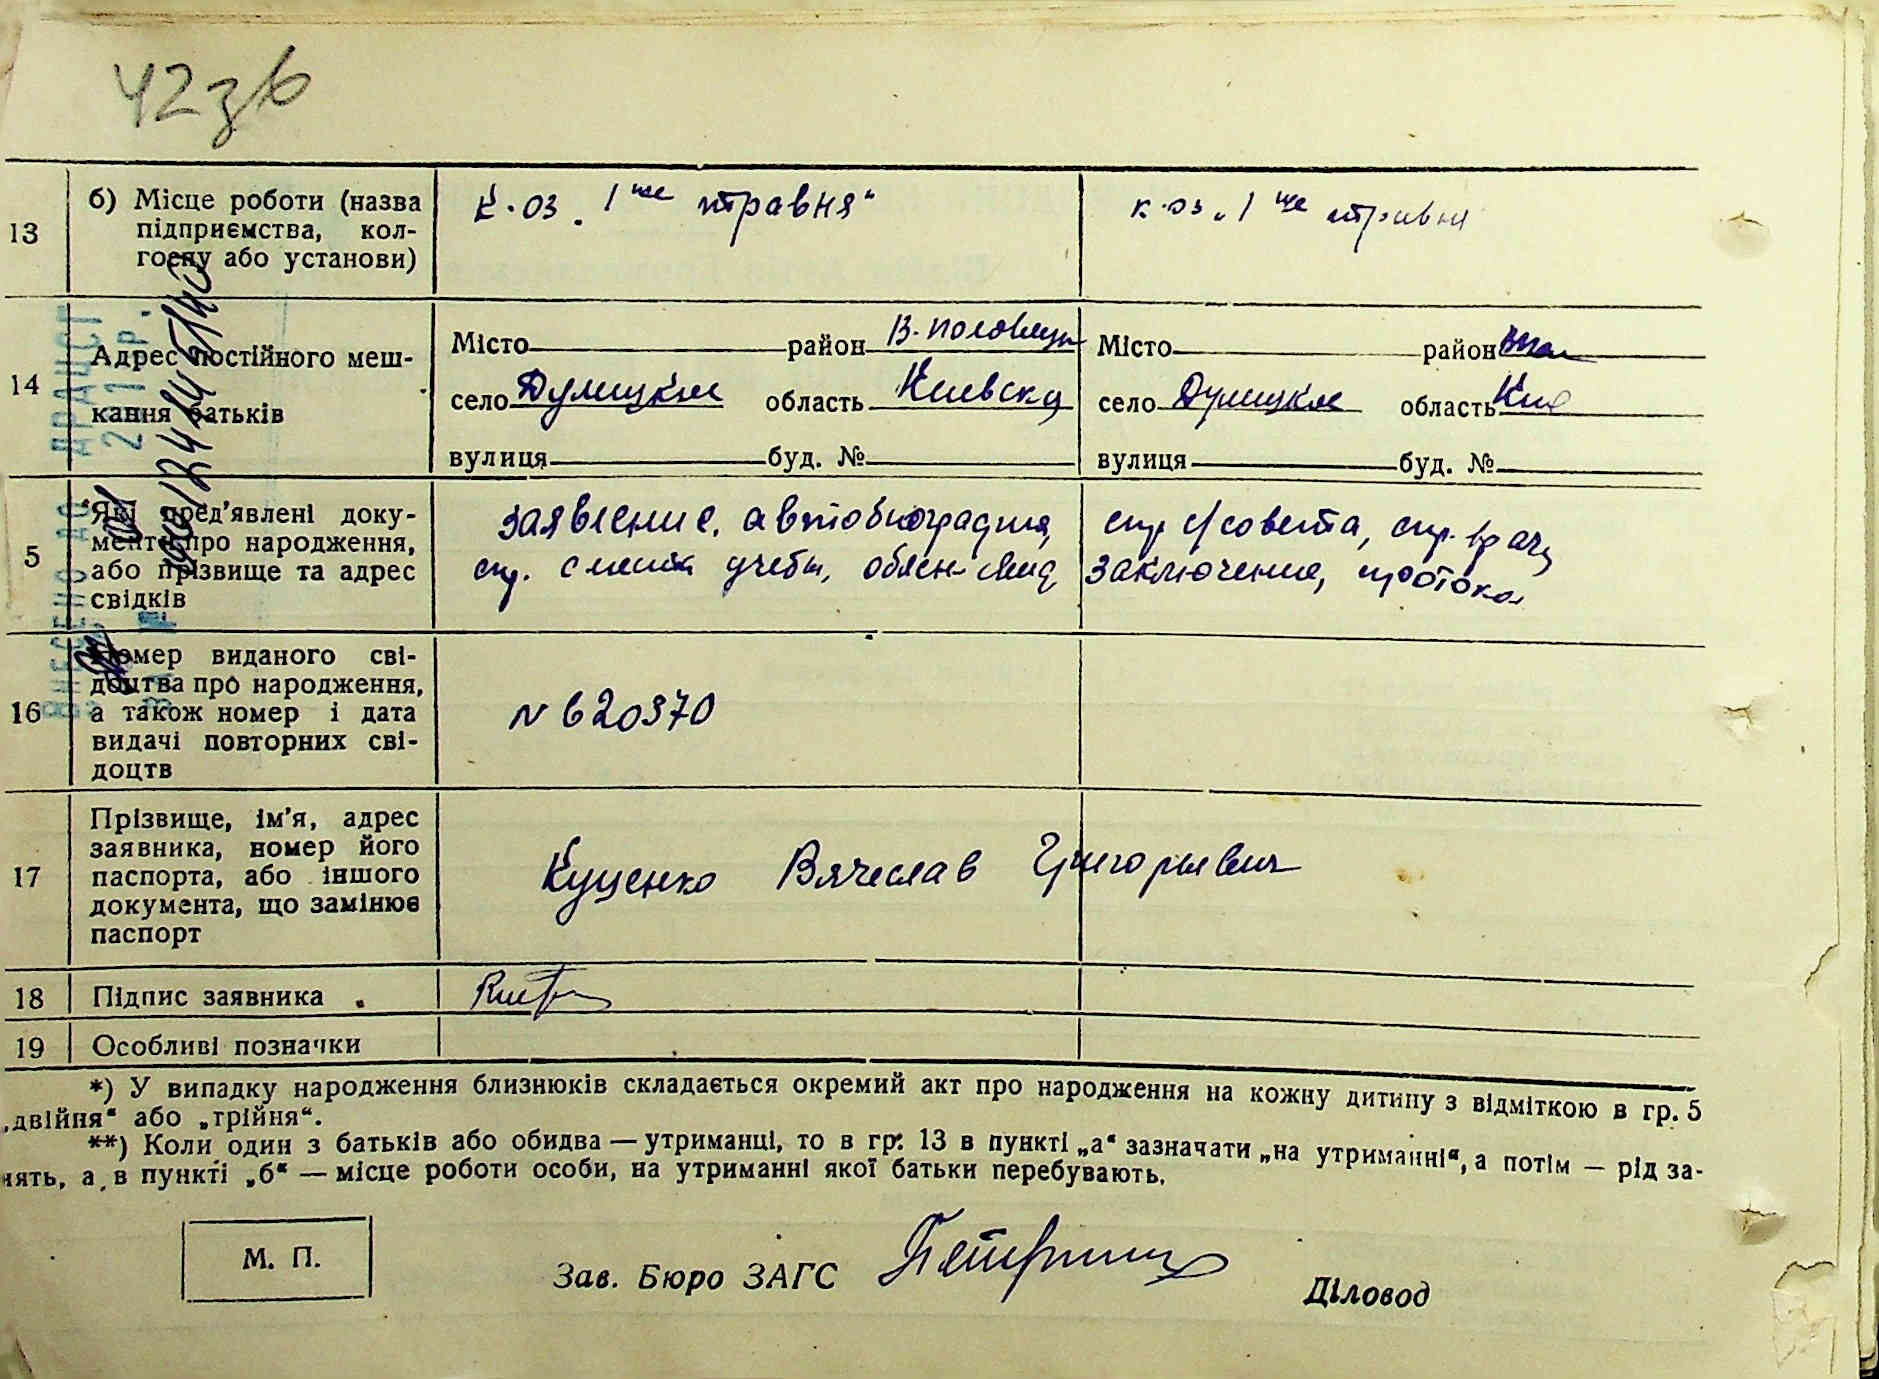 42зв
13
б) Місце роботи (назва
підприємства, кол-
госпу або установи)
к-оз „1ше травня“
к-оз „1ше травня
14
Адрес постійного меш-
кання батьків
Місто район В-Половец
село Дулицьке область Киевска
вулиця буд. №
Місто район
село Дулицьке область Кие
вулиця буд. №
5
Які пред’явлені доку-
менти про народження,
або прізвище та адрес
свідків
заявление, автобиография, спр с/совета, спр. врача
спр. с места учебы, заключение, протокол
16
Номер виданого сві-
доцтва про народження,
а також номер і дата
видачі повторних сві-
доцтв
N 620370
17
Прізвище, ім’я, адрес
заявника, номер його
паспорта, або іншого
документа, що замінює
паспорт
Куценко Вячеслав Григорьевич
18
Підпис заявника
19
Особливі позначки
*) У випадку народження близнюків складається окремий акт про народження на кожну дитину з відміткою в гр. 5
„двійня“ або „трійня“.
**) Коли один з батьків або обидва — утриманці, то в гр. 13 в пункті „а“ зазначати „на утриманні“, а потім — рід за-
нять, а в пункті „б“ — місце роботи особи, на утриманні якої батьки перебувають.
М. П.
Зав. Бюро ЗАГС
Діловод
ВНЕСЕНО ДО ДРАЦСГ